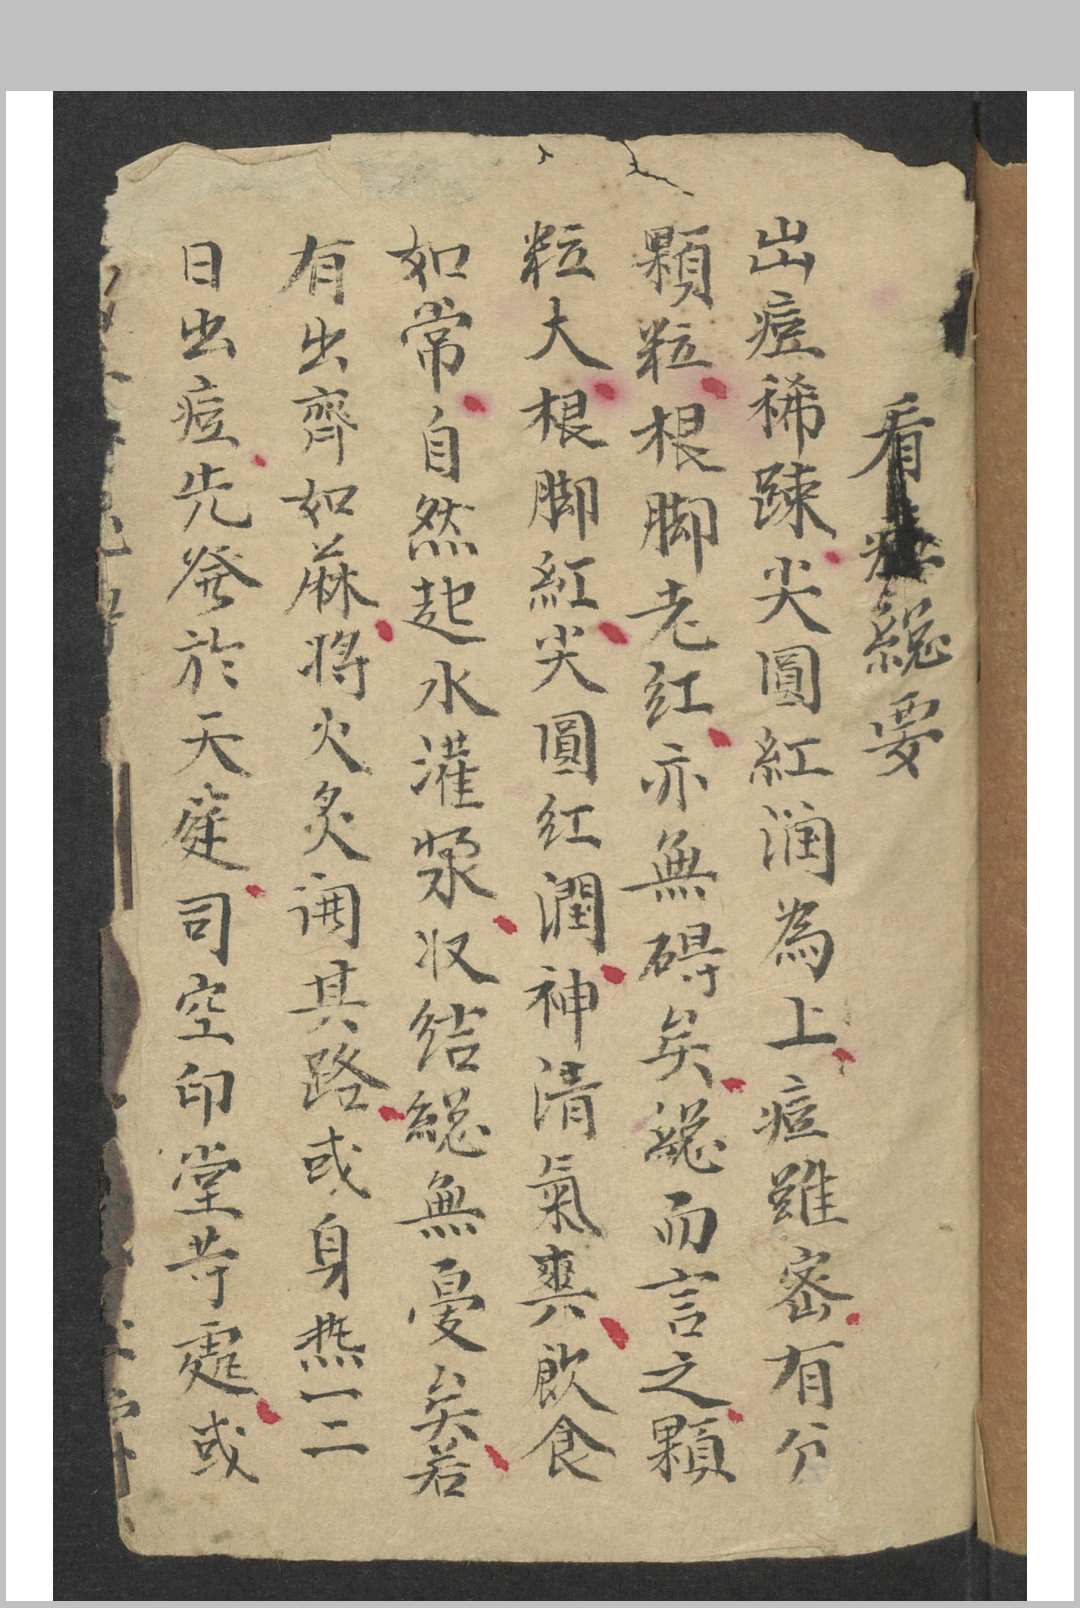 看痘総要
出痘稀踈尖圓紅润為上痘雖宻有分
顆粒根脚老红亦無碍矣総而言之顆
粒大根脚紅尖圓红潤神清氣爽飲食
如常自然起水灌漿収结総無憂矣若
有出齊如蔴将火炙開其路或身热一二
日出痘先發於天庭司空印堂䒭處或